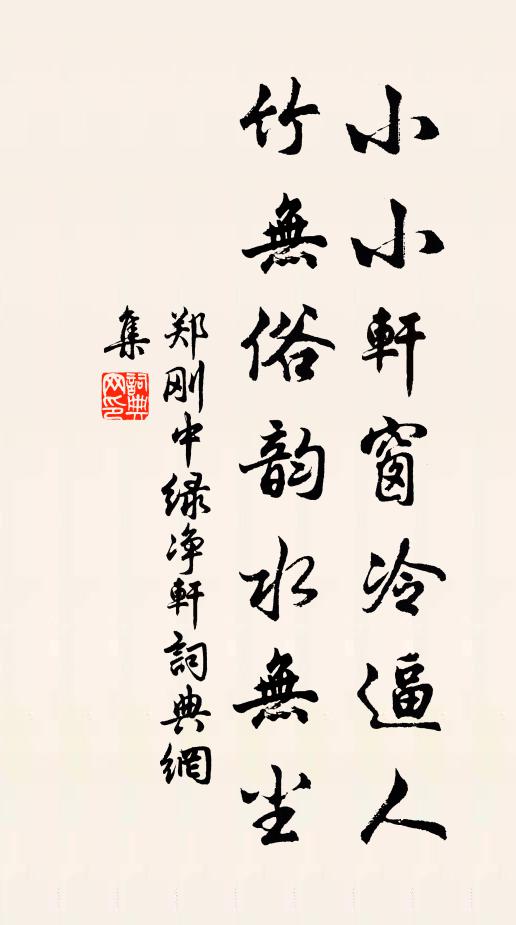 小小軒窗冷逼人
竹無俗韵水無尘
郑刚中绿净軒詞典網
集
詞典网印